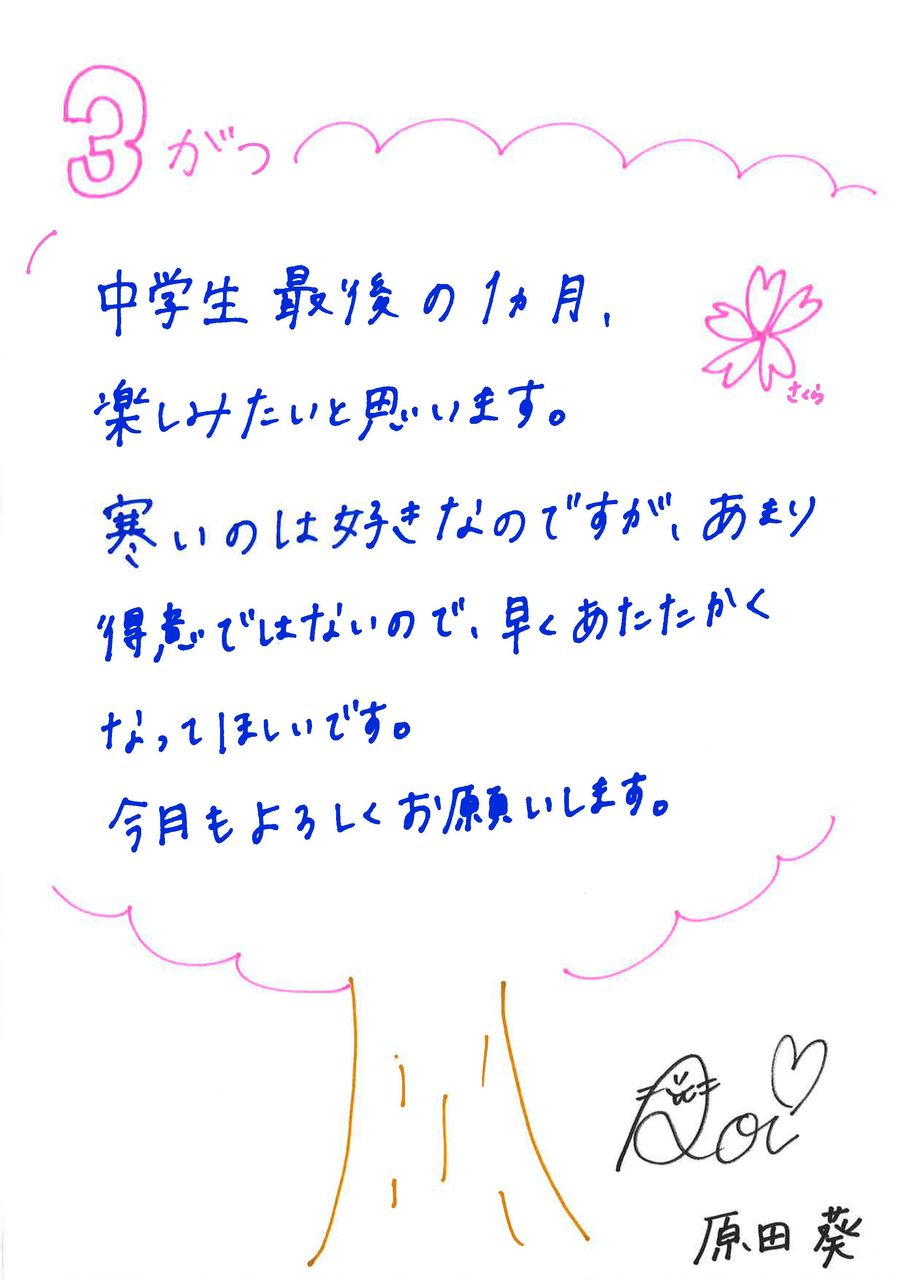 3がつ
中学生最後の1ヵ月、
楽しみたいと思います。
さくら
寒いのは好きなのですが、あまり
得意ではないので、早くあたたかく
なってほしいです。
今月もよろしくお願いします。
Aoi
原田葵